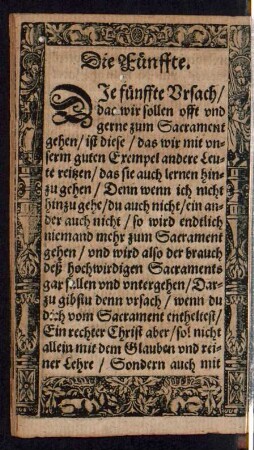 Die Fünffte.
DIe fünffte Vrsach/
das wir sollen offt vnd
gerne zum Sacrament
gehen/ ist diese/ das wir mit vn-
serm guten Exempel andere Leu-
te reitzen/ das sie auch lernen hin-
zu gehen/ Denn wenn ich nicht
hinzu gehe/ du auch nicht/ ein an-
der auch nicht/ so wird endtlich
niemand mehr zum Sacrament
gehen/ vnd wird also der brauch
deß hochwirdigen Sacraments
gar fallen vnd vntergehen/ Dar-
zu gibstu denn vrsach/ wenn du
dich vom Sacrament entheltest/
Ein rechter Christ aber/ sol nicht
allein mit dem Glauben vnd rei-
ner Lehre/ Sondern auch mit